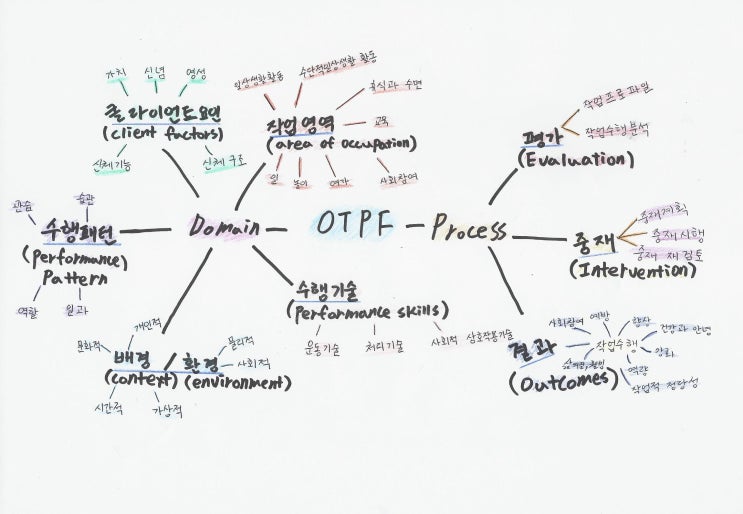 가치 신념 영성
클라이언트요인
(client factors)
신체기능 신체 구조
일상생활활동 수단적일상생활 활동
휴식과 수면
작업 영역
(area of occupation)
교육
일 놀이 여가 사회참여
관습 습관
수행패턴
(performance)
Pattern
역할 일과
Domain
OTPF
Process
수행기술
(performance skills)
운동기술 처리기술 사회적 상호작용기술
문화적 개인적 물리적
사회적
배경 / 환경
(context) (environment)
시간적 가상적
평가
(Evaluation)
작업프로파일
작업수행분석
중재
(Intervention)
중재계획
중재 시행
중재 재 검토
결과
(Outcomes)
사회참여 예방 향상 건강과 안녕
작업수행
강화
역량
작업적 정당성